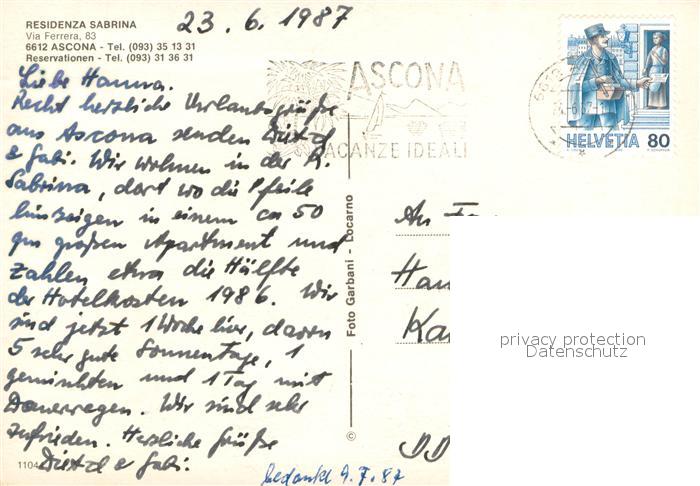 RESIDENZA SABRINA
Via Ferrera, 83
6612 ASCONA - Tel. (093) 35 13 31
Reservationen - Tel. (093) 31 36 31
23.6.1987
ASCONA
VACANZE IDEALI
HELVETIA 80
Liebe Hanna.
Recht herzliche Urlaubsgrüße
aus Ascona senden Diet.d
& Gabi. Wir wohnen in der R.
Sabrina, dort wo die Pfeile
hinzeigen in einem ca 50
qm großen Apartment und
zahlen etwa die Hälfte
der Hotelkosten 1986. Wir
sind jetzt 1 Woche hier, davon
5 sehr gute Sonnentage, 1
gemischten und 1 Tag mit
Dauerregen. Wir sind sehr
zufrieden. Herzliche Grüße
Diet.d & Gabi.
An
Han
Ka
DD
Foto Garbani - Locarno
©
1104
bedankt 9.7.87
privacy protection
Datenschutz